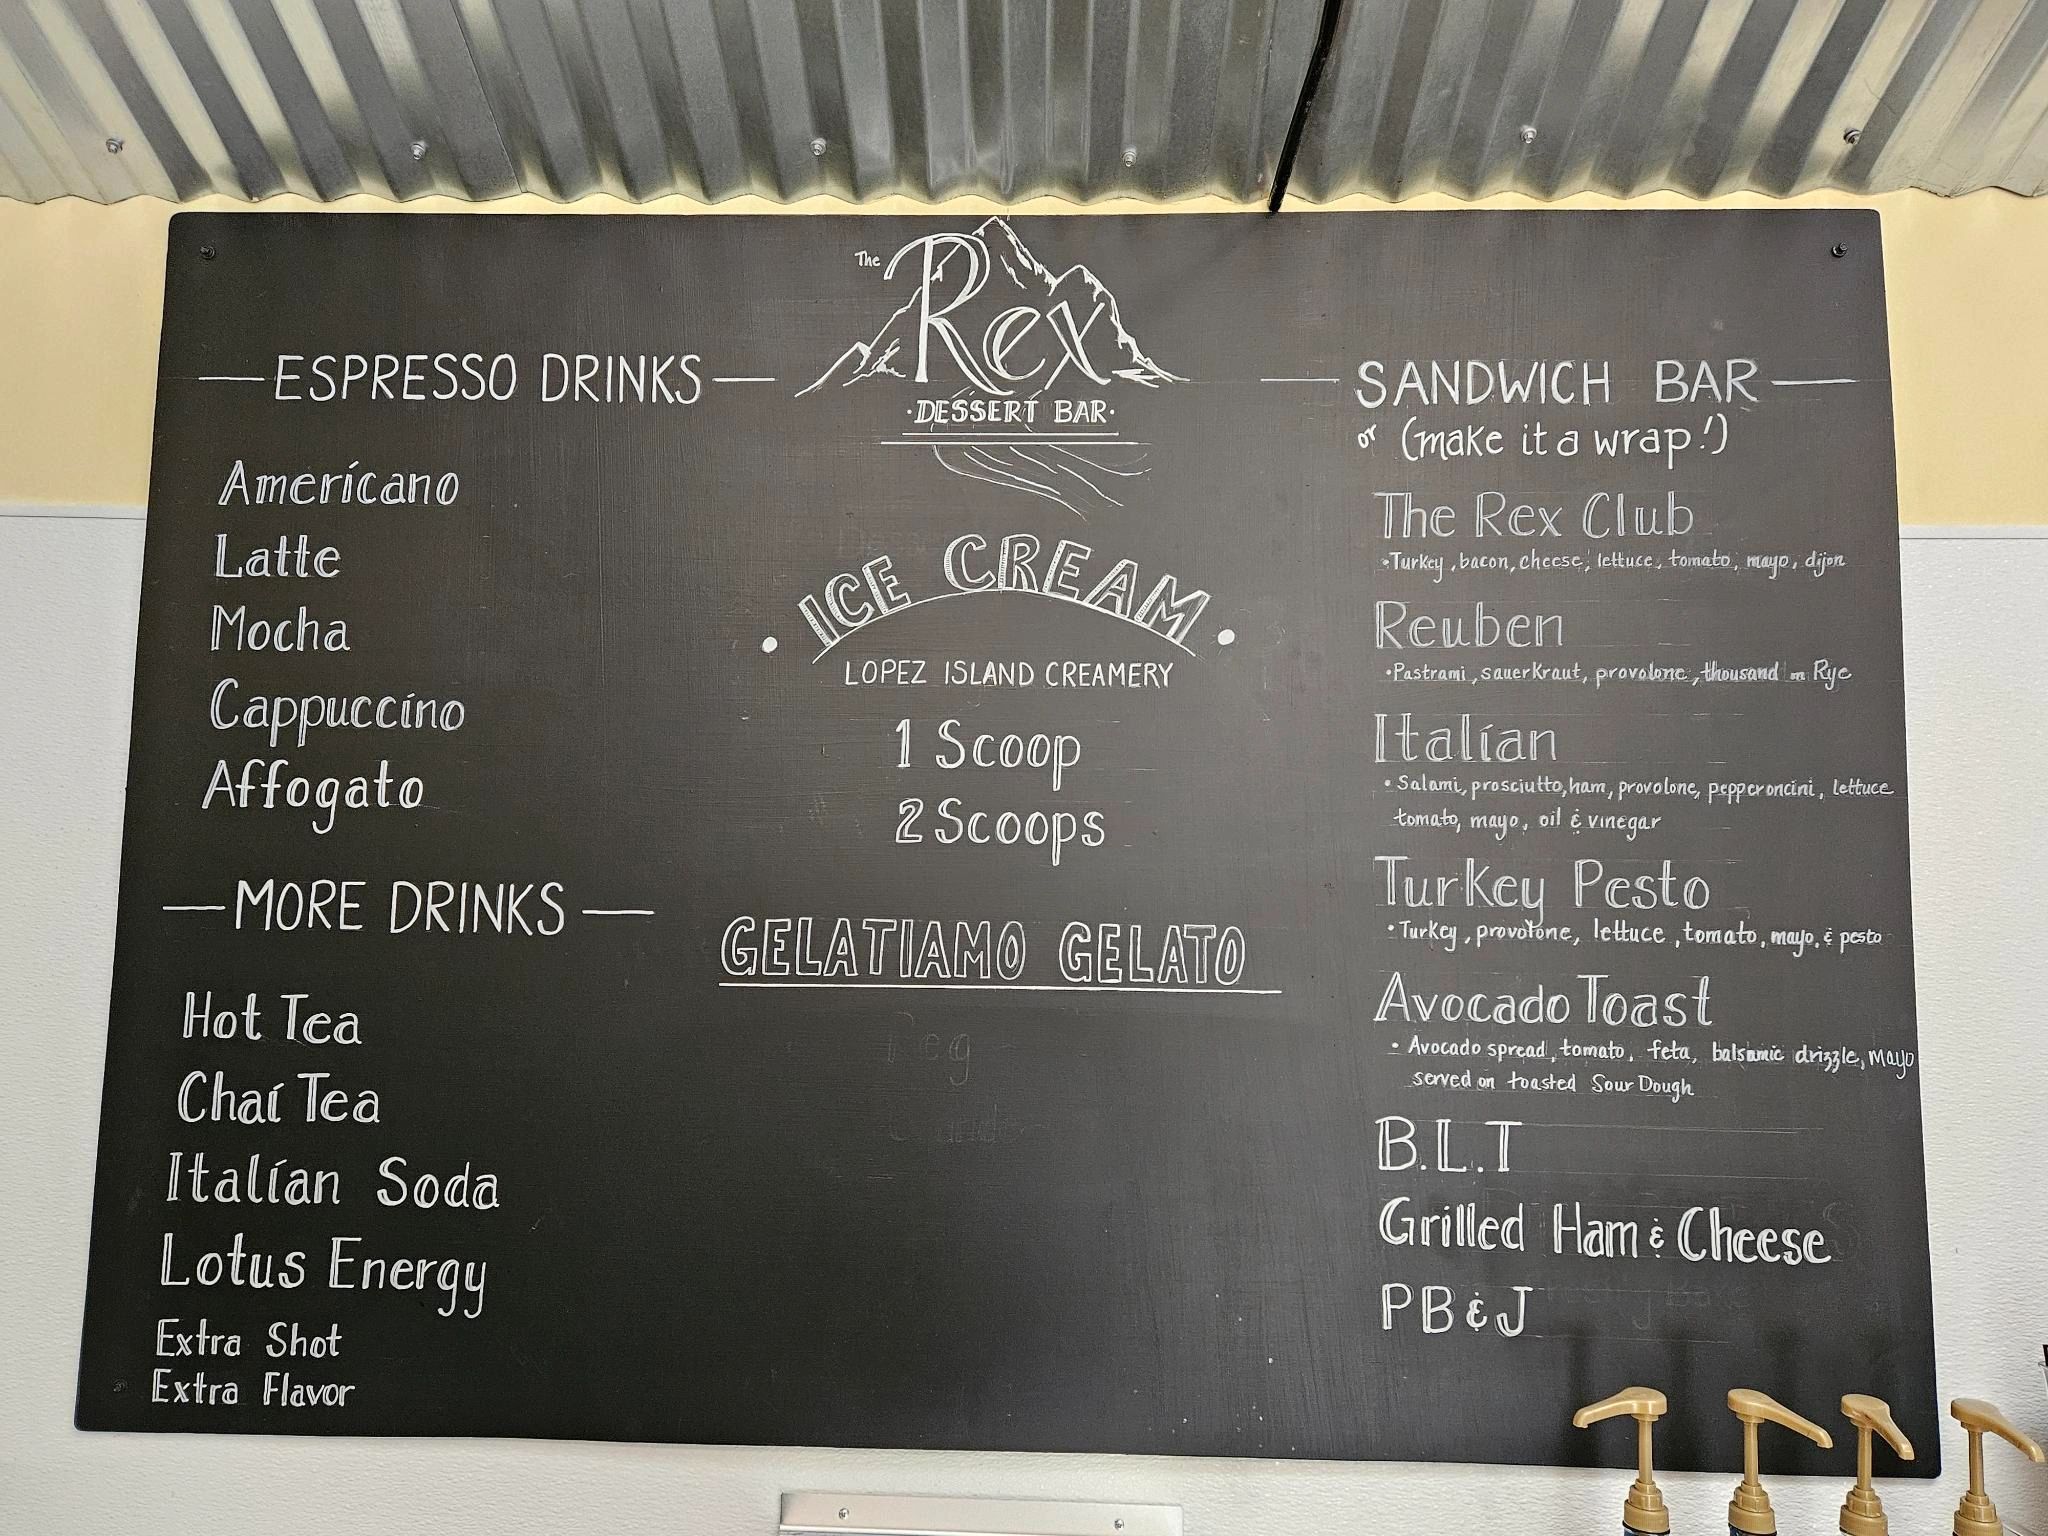 The Rex
·DESSERT BAR·
ESPRESSO DRINKS
Americano
Latte
Mocha
Cappuccino
Affogato
MORE DRINKS
Hot Tea
Chai Tea
Italian Soda
Lotus Energy
Extra Shot
Extra Flavor
• ICE CREAM •
LOPEZ ISLAND CREAMERY
1 Scoop
2 Scoops
GELATIAMO GELATO
SANDWICH BAR
or (make it a wrap!)
The Rex Club
•Turkey, bacon, cheese, lettuce, tomato, mayo, dijon
Reuben
•Pastrami, sauerkraut, provolone, thousand on Rye
Italian
• Salami, prosciutto, ham, provolone, pepperoncini, lettuce
tomato, mayo, oil & vinegar
Turkey Pesto
• Turkey, provolone, lettuce, tomato, mayo, & pesto
Avocado Toast
• Avocado spread, tomato, feta, balsamic drizzle, mayo
served on toasted Sour Dough
B.L.T
Grilled Ham & Cheese
PB & J